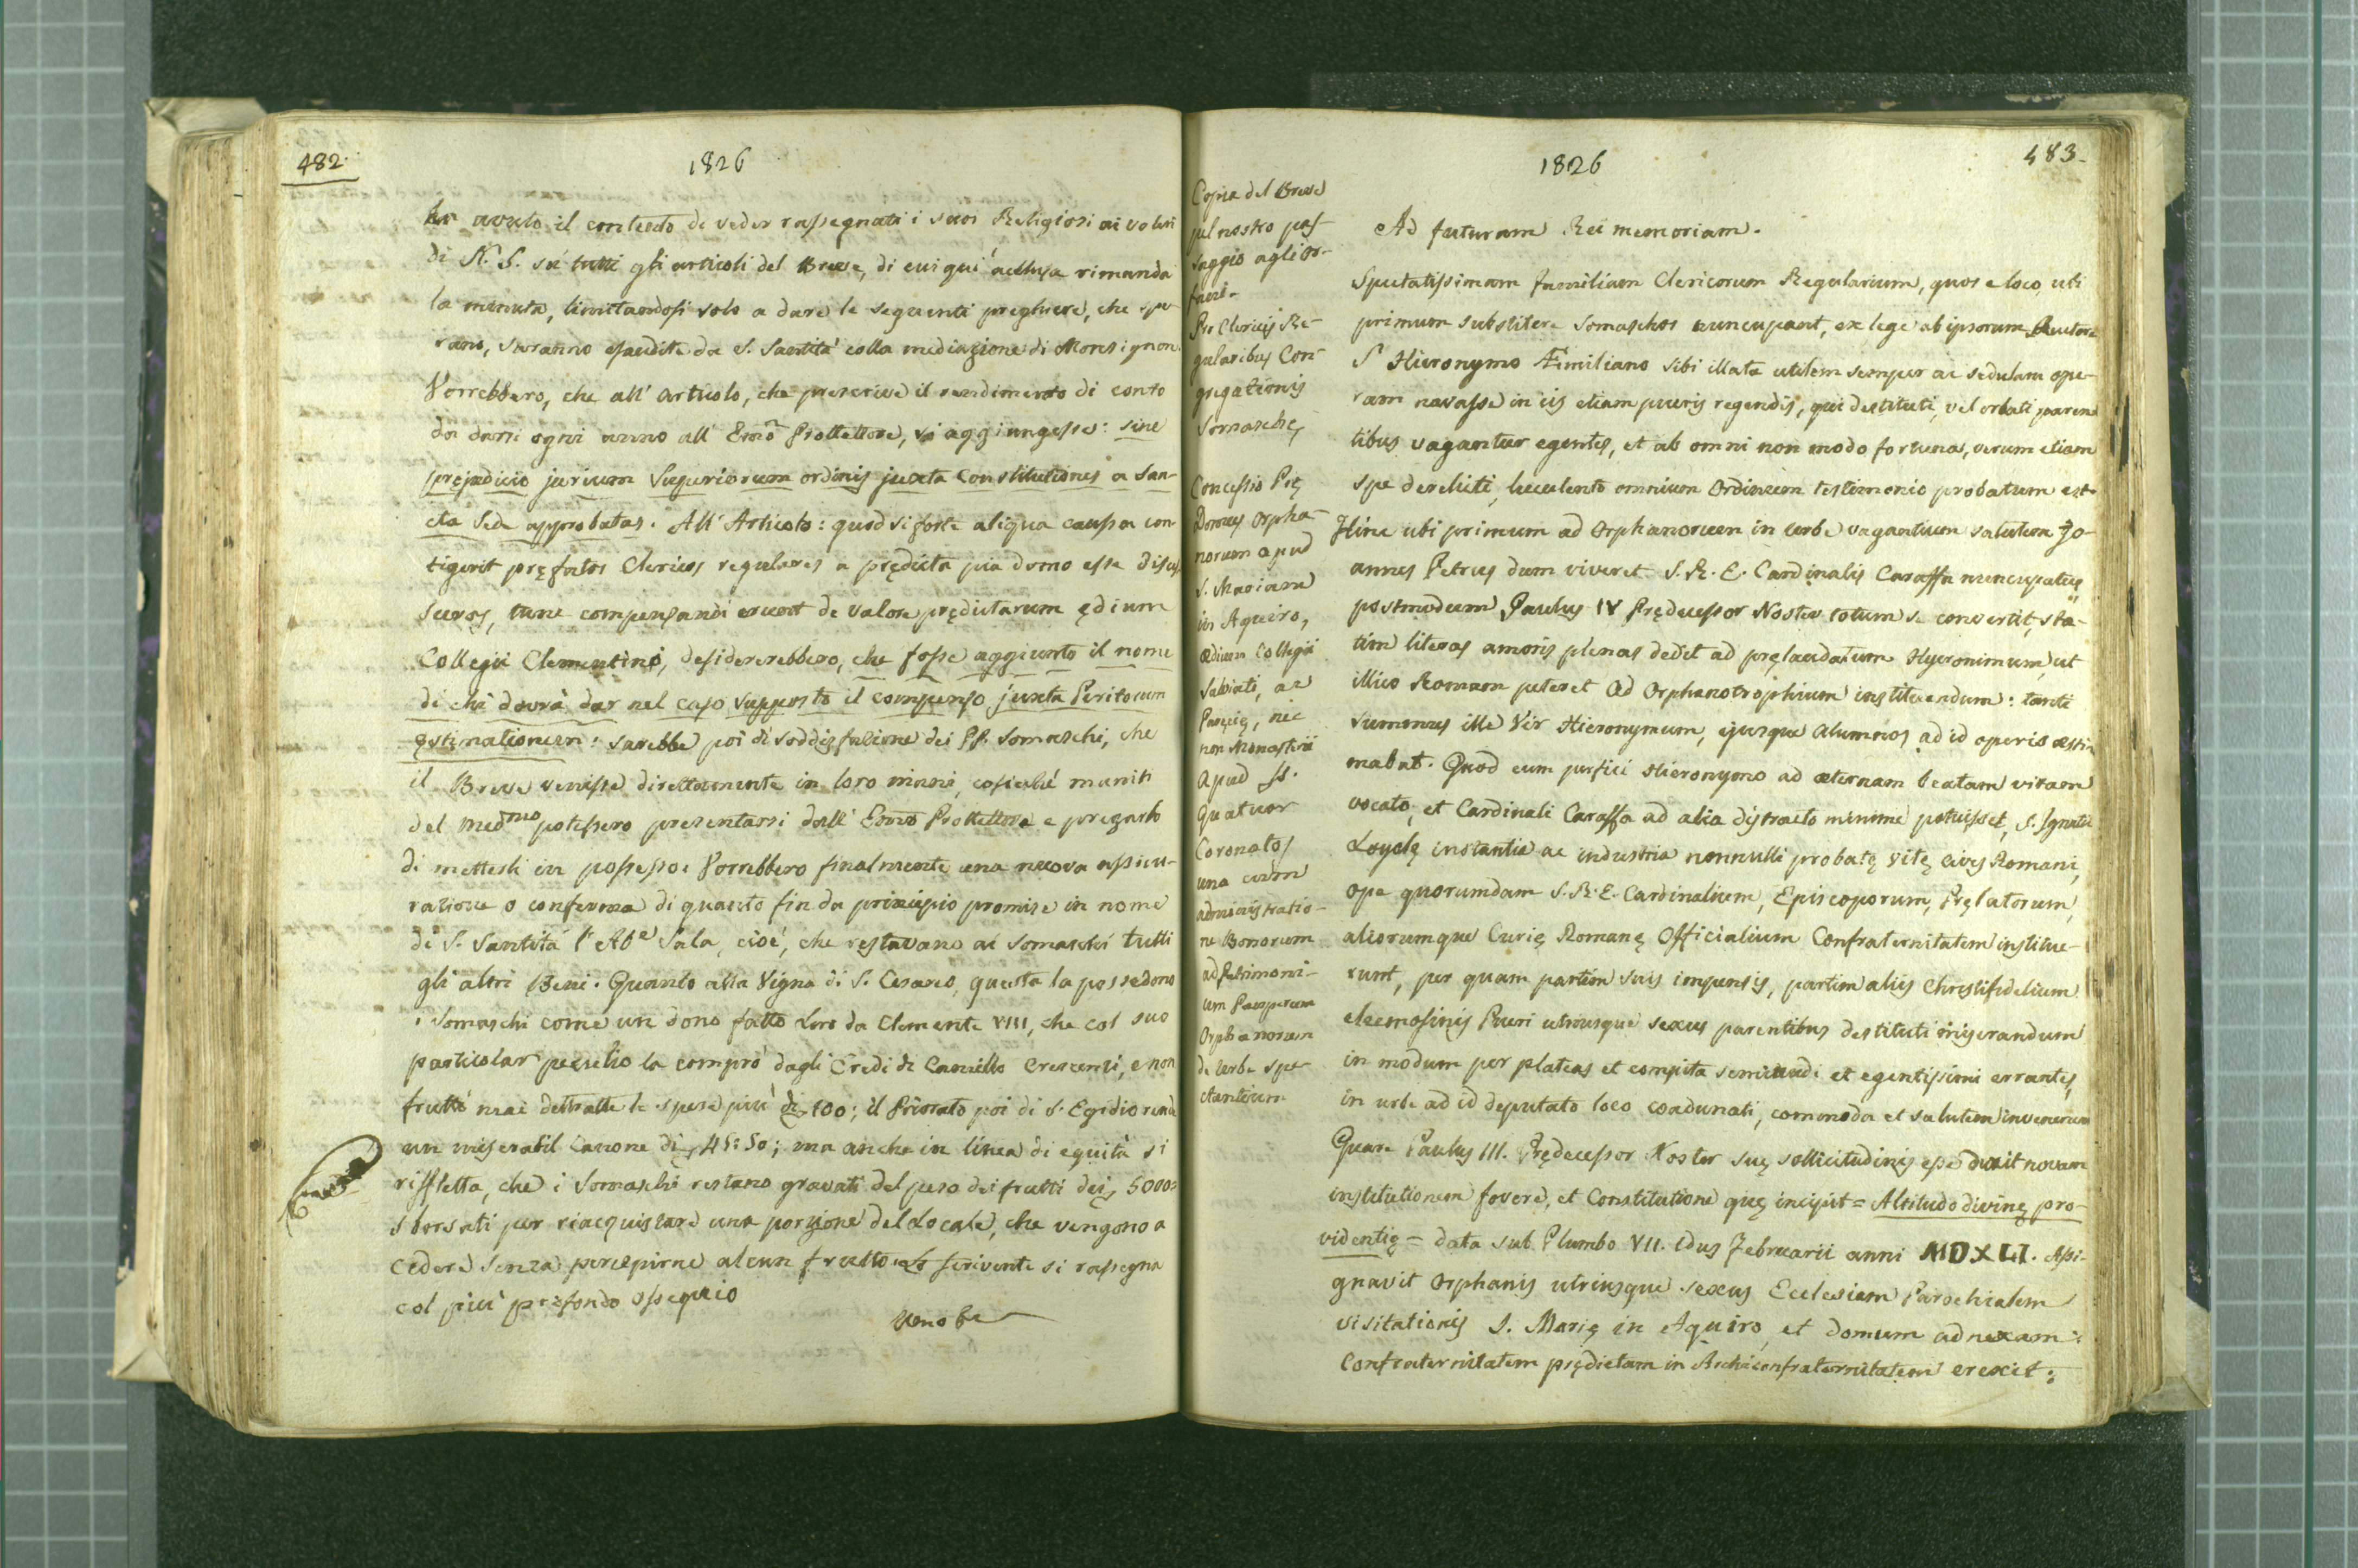 482.
1826
ha avuto il contento di veder rassegnati i suoi Religiosi ai voleri
di N. S. sù tutti gli articoli del Breve, di cui quì acclusa rimanda
la minuta, limitandosi solo a dare le seguenti preghiere, che spe-
rano, saranno esaudite da S. Santità colla mediazione di Monsignore.
Vorrebbero, che all' Articolo, che prescrive il rendimento di conto
da darsi ogni anno all' Emo Prottettore, si aggiungesse: sine
pręjudicio jurium Superiorum ordinis juxta Constitutiones a San-
cta Sede approbatas. All' Articolo: quod si forte aliqua caussa con-
tigerit pręfatos Clericos regulares a prędicta pia domo esse disces-
suros, tunc compensandi erunt de valore prędictarum ędium
Collegii Clementini, desidererebbero, che fosse aggiunto il nome
di chi dovrà dar nel caso supposto il compenso juxta Peritorum
ęstimationem: sarebbe poi di soddisfazione dei PP. Somaschi, che
il Breve venisse direttamente in loro mani, cosicché muniti
del medmo potessero presentarsi dall' Emo Prottettore e pregarlo
di metterli in possesso. Vorrebbero finalmente una nuova assicu-
razione o conferma di quanto fin da principio promise in nome
di S. Santità l' Abe Sala, cioè, che restavano ai Somaschi tutti
gli altri Beni. Quanto alla Vigna di S. Cesareo, questa la possedono
i Somaschi come un dono fatto Loro da Clemente VIII, che col suo
particolar peculio la comprò dagli Eredi di Camillo Crescenzi, e non
fruttò mai dettratte le spese più di 100; il Priorato poi di S. Egidio rende
un miserabil Canone di 45:50; ma anche in linea di equità si
riffletta, che i Somaschi restano gravati del peso dei frutti dei 5000:
sborsati per riacquistare una porzione del Locale, che vengono a
cedere senza percepirne alcun frutto. Lo scrivente si rassegna
col più profondo ossequio
483.
1826
Copia del Breve
pel nostro pas-
saggio agli or-
fani.
Pro Clericis Re-
gularibus Con-
gregationis
Somaschę,
Concessio Pię
Domus Orpha-
norum apud
S. Mariam
in Aquiro,
ædium Collegii
Salviati, ac
nec
non Monasterii
apud SS.
Quatuor
Coronatos
una cum
administratio-
ne Bonorum
ad Patrimoni-
um Pauperum
Orphanorum
de Urbe spe-
ctantium
Ad futuram Rei memoriam.
Spectatissimam familiam Clericorum Regularium, quos e loco, ubi
primum substitere Somaschos nuncupant, ex lege ab ipsorum Auctore
S. Hieronymo Æmiliano sibi illata utilem semper ac sedulam ope-
ram navasse in iis etiam pueris regendis, qui destituti, vel orbati paren-
tibus vagantur egentes, et ab omni non modo fortuna, verum etiam
spe derelicti, luculento omnium Ordinum testimonio probatum est.
Hinc ubi primum ad Orphanorum in Urbe vagantium salutem Jo-
annes Petrus dum viveret S. R. E. Cardinalis Caraffa nuncupatus,
postmodum Paulus IV Prędecessor Noster totum se convertit, sta-
tim literas amoris plenas dedit ad pręlaudatum Hyeronimum, ut
illico Romam peteret ad Orphanotrophium instituendum: tanti
summus ille Vir Hieronymum, ejusque Alumnos ad id operis æsti-
mabat. Quod cum perfici Hieronymo ad æternam beatam vitam
vocato, et Cardinali Caraffa ad alia distracto minime potuisset, S. Ignatii
Loyolę instantia ac industria nonnulli probatę vitę cives Romani,
ope quorumdam S. R. E. Cardinalium, Episcoporum, Pręlatorum,
aliorumque Curię Romanę Officialium Confraternitatem institue-
runt, per quam partim suis impensis, partim aliis Christifidelium
eleemosinis Pueri utriusque sexus parentibus destituti miserandum
in modum per plateas et compita seminudi et egentissimi errantes,
in urbe ad id deputato loco coadunati, commoda et salutem invenerunt
Quare Paulus III. Prędecessor Noster suę sollicitudinis esse duxit novam
institutionem fovere, et Constitutione quę incipit = Altitudo divinę pro-
videntię = data sub Plumbo VII. Idus Februarii anni MDXLI. Assi-
gnavit Orphanis utriusque sexus Ecclesiam Parochialem
visitationis S. Marię in Aquiro, et domum adnexam:
Confraternitatem prędictam in Archiconfraternitatem erexit: